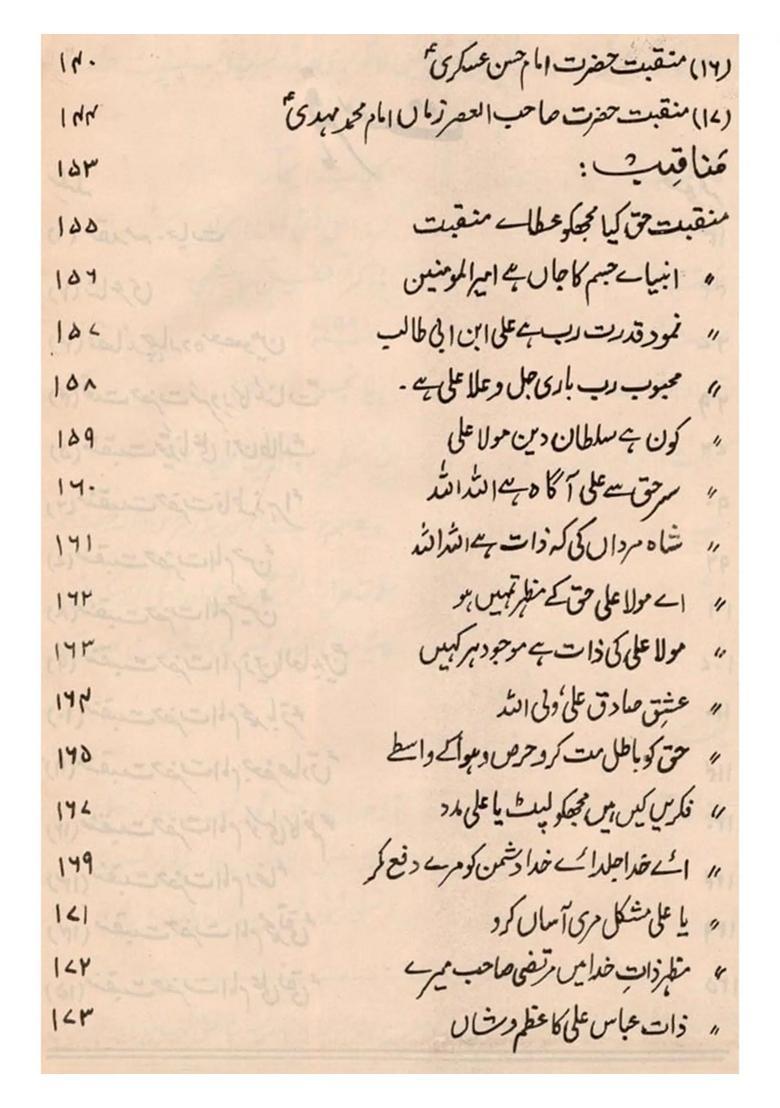 (۱۶) منقبت حضرت امام حسن عسکریؑ ۱۴۰
(۱۷) منقبت حضرت صاحب العصر زماں امام محمد مہدیؑ ۱۴۴
مَناقِب : ۱۵۳
منقبت حق کیا مجھکو عطاے منقبت ۱۵۵
〃 انبیاے جسم کا جاں ہے امیرالمومنین ۱۵۶
〃 نمود قدرت رب ہے علی ابن ابی طالب ۱۵۷
〃 محبوب رب باری جل و علا علی ہے۔ ۱۵۸
〃 کون ہے سلطان دین مولا علی ۱۵۹
〃 سر حق سے علی آگاہ ہے اللہ اللہ ۱۶۰
〃 شاہ مرداں کی کہ ذات ہے اللہ اللہ ۱۶۱
〃 اے مولا علی حق کے مظہر تمہیں ہو ۱۶۲
〃 مولا علی کی ذات ہے موجود ہر کہیں ۱۶۳
〃 عشقِ صادق علیؑ ولی اللہ ۱۶۴
〃 حق کو باطل مت کرو حرص و ہوا کے واسطے ۱۶۵
〃 فکریں کیں ہیں مجھکو لپٹ یا علی مدد ۱۶۷
〃 اے خدا جلد اے خدا دشمن کو مرے دفع کر ۱۶۹
〃 یا علی مشکل مری آساں کرو ۱۷۱
〃 مظہر ذاتِ خدا ہیں مرتضی صاحب میرے ۱۷۲
〃 ذات عباس علی کا عظم و شاں ۱۷۳